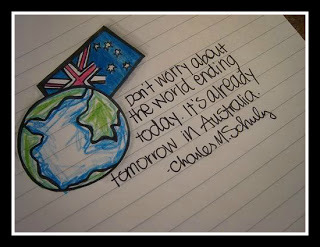 Don't worry about
the world ending
today. It's already
tomorrow in Australia.
-Charles M. Schulz